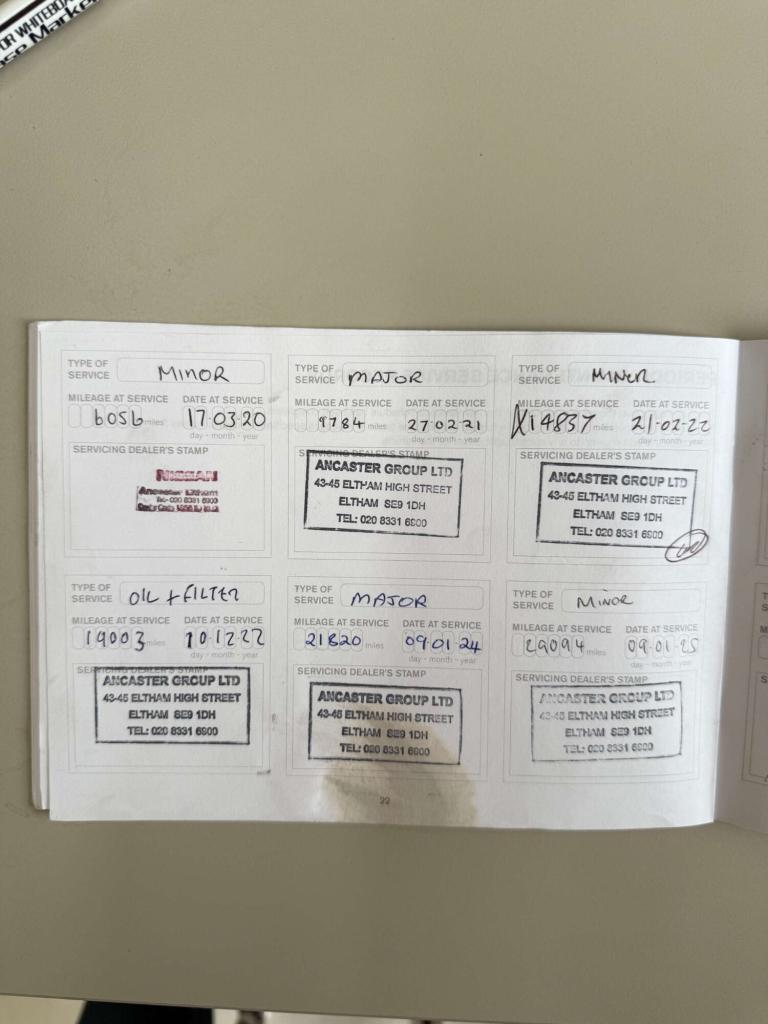 OR WHITEBOA
se Marke
TYPE OF SERVICE MINOR
MILEAGE AT SERVICE DATE AT SERVICE
6056 miles 17 03 20
day - month - year
SERVICING DEALER'S STAMP
NISSAN
Ancaster Eltham
Tel: 020 8331 6900
TYPE OF SERVICE MAJOR
MILEAGE AT SERVICE DATE AT SERVICE
9784 miles 27 02 21
day - month - year
SERVICING DEALER'S STAMP
ANCASTER GROUP LTD
43-45 ELTHAM HIGH STREET
ELTHAM SE9 1DH
TEL: 020 8331 6900
TYPE OF SERVICE MINOR
MILEAGE AT SERVICE DATE AT SERVICE
14837 miles 21-02-22
day - month - year
SERVICING DEALER'S STAMP
ANCASTER GROUP LTD
43-45 ELTHAM HIGH STREET
ELTHAM SE9 1DH
TEL: 020 8331 6900
TYPE OF SERVICE OIL + FILTER
MILEAGE AT SERVICE DATE AT SERVICE
19003 miles 20.12.22
day - month - year
SERVICING DEALER'S STAMP
ANCASTER GROUP LTD
43-45 ELTHAM HIGH STREET
ELTHAM SE9 1DH
TEL: 020 8331 6900
TYPE OF SERVICE MAJOR
MILEAGE AT SERVICE DATE AT SERVICE
21820 miles 09.01.24
day - month - year
SERVICING DEALER'S STAMP
ANCASTER GROUP LTD
43-45 ELTHAM HIGH STREET
ELTHAM SE9 1DH
TEL: 020 8331 6900
TYPE OF SERVICE MINOR
MILEAGE AT SERVICE DATE AT SERVICE
29094 miles 09.01.25
day - month - year
SERVICING DEALER'S STAMP
ANCASTER GROUP LTD
43-45 ELTHAM HIGH STREET
ELTHAM SE9 1DH
TEL: 020 8331 6900
22